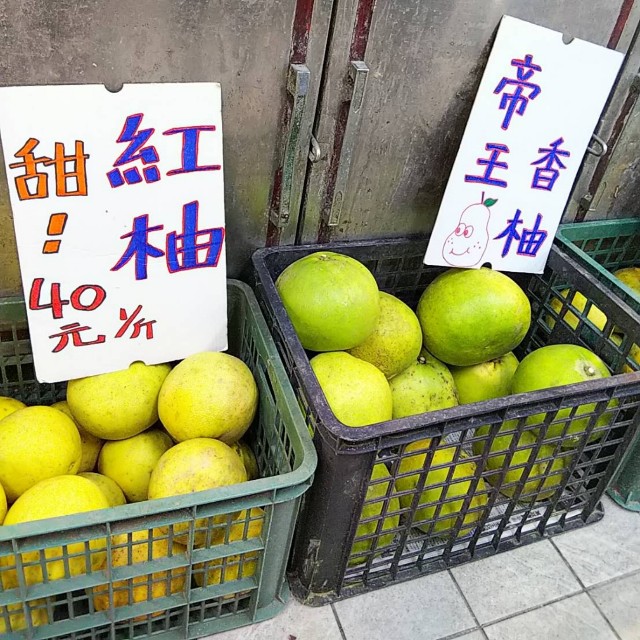 紅柚
甜!
40
元 1/斤
帝王
香柚